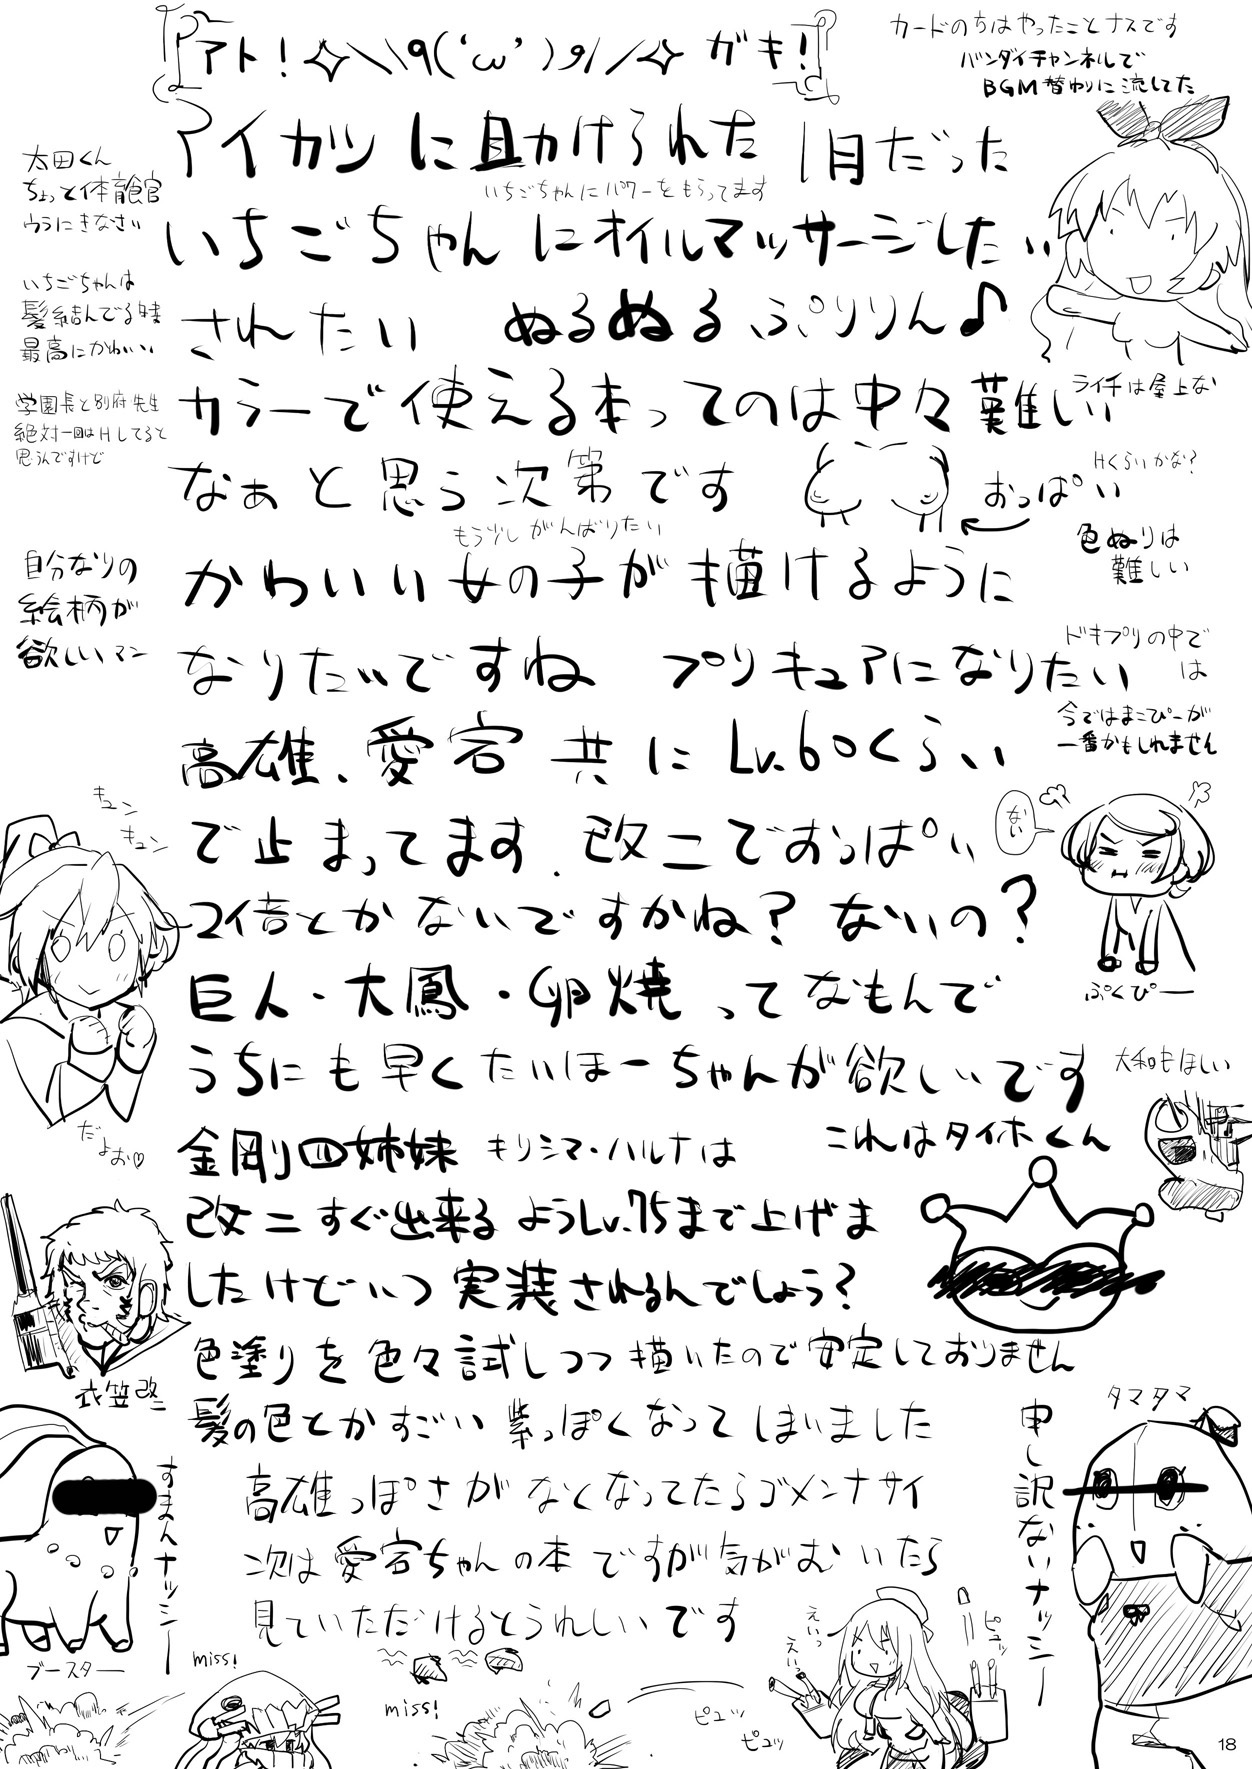 アト！✧＼٩('ω')و／✧ガキ！
カードのちはやったことナスです
バンダイチャンネルで
BGM替わりに流してた
アイカツに助けられた1月だった
いちごちゃんにパワーをもらってます
太田くん
ちょっと体育館
ウラにきなさい
いちごちゃんにオイルマッサージしたい
いちごちゃんは
髪結んでる時
最高にかわいい
されたい ぬるぬるぷりりん♪
学園長と別府先生
絶対一回はHしてると
思うんですけど
カラーで使える本ってのは中々難しい
ライチは屋上な
なぁと思う次第です
おっぱい
Hくらいかな？
もう少しがんばりたい
色ぬりは
難しい
自分なりの
絵柄が
欲しいマン
かわいい女の子が描けるように
なりたいですね プリキュアになりたい
ドキプリの中で
は
今ではまこぴーが
一番かもしれません
高雄、愛宕共にLv.60くらい
で止まってます。改二でおっぱい
ない
2倍とかないですかね？ないの？
ぷくぴー
キュン
キュン
だよお♡
巨人・大鳳・卵焼ってなもんで
うちにも早くたいほーちゃんが欲しいです
大和もほしい
金剛四姉妹 キリシマ・ハルナは
これはタイホくん
改二すぐ出来るようLv.75まで上げま
したけどいつ実装されるんでしょう？
衣笠改二
色塗りを色々試しつつ描いたので安定しておりません
髪の色とかすごい紫っぽくなってしまいました
高雄っぽさがなくなってたらゴメンナサイ
次は愛宕ちゃんの本ですが気がむいたら
見ていただけるとうれしいです
タマタマ
申し訳ないナッシー
すまんナッシー
ブースター
miss!
miss!
えいっ
えいっ
ピュッ
ピュッ
ピュッ
18